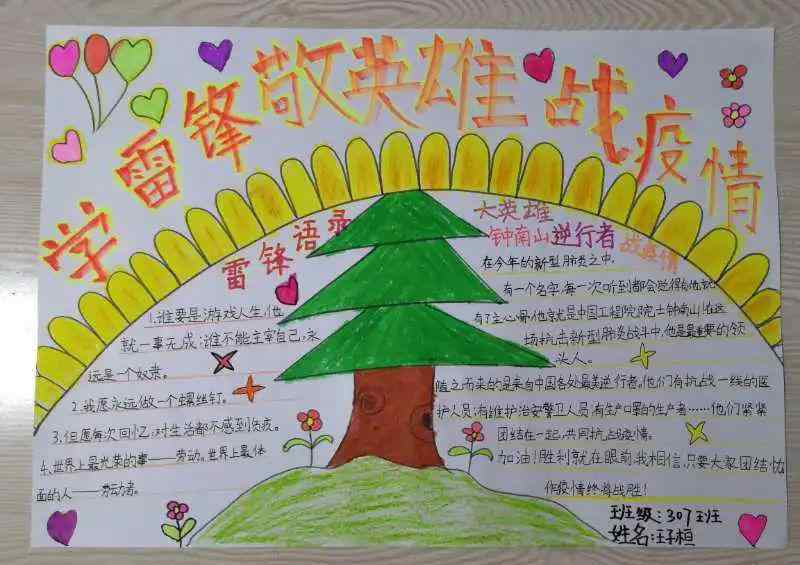 学雷锋敬英雄战疫情
雷锋语录
1.谁要是游戏人生,他
就一事无成;谁不能主宰自己,永
远是一个奴隶。
2.我愿永远做一个螺丝钉。
3.但愿每次回忆,对生活都不感到负疚。
4.世界上最光荣的事——劳动。世界上最体
面的人——劳动者。
大英雄
钟南山逆行者战疫情
在今年的新型肺炎之中,
有一个名字,每一次听到都会觉得
有了主心骨,他就是中国工程院院士钟南山!在这
场抗击新型肺炎战斗中,他是最重要的领
头人。
随之而来的是来自中国各处最美逆行者。他们有抗战一线的医
护人员;有维护治安警卫人员;有生产口罩的生产者……他们紧紧
团结在一起,共同抗战疫情。
加油!胜利就在眼前,我相信,只要大家团结协
作疫情终将战胜!
班级:307班
姓名:王子桓